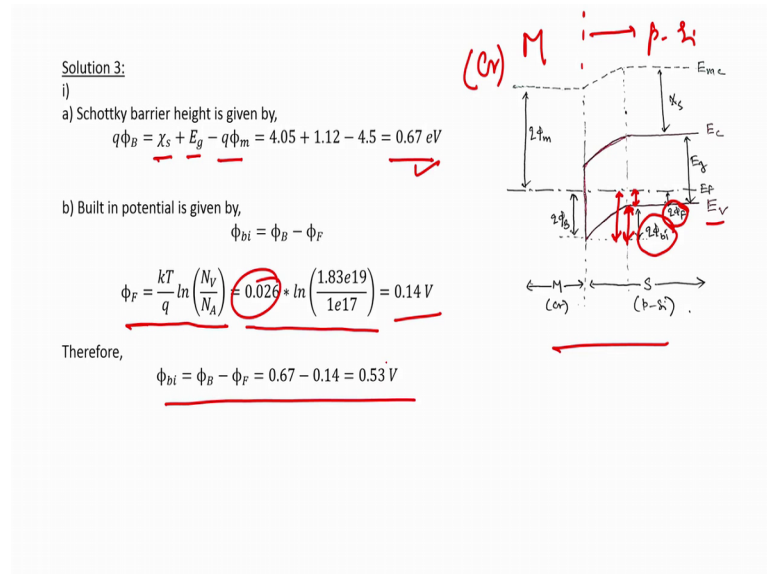 Solution 3:
i)
a) Schottky barrier height is given by,
qϕB = χs + Eg − qϕm = 4.05 + 1.12 − 4.5 = 0.67 eV
b) Built in potential is given by,
ϕbi = ϕB − ϕF
ϕF = kT/q ln(NV/NA) = 0.026 ∗ ln(1.83e19/1e17) = 0.14 V
Therefore,
ϕbi = ϕB − ϕF = 0.67 − 0.14 = 0.53 V
(Cr) M p-Si
χs
qϕm
Ec
Eg
EF
EV
qϕB
qϕF
qϕbi
M S
(Cr) (p-Si)